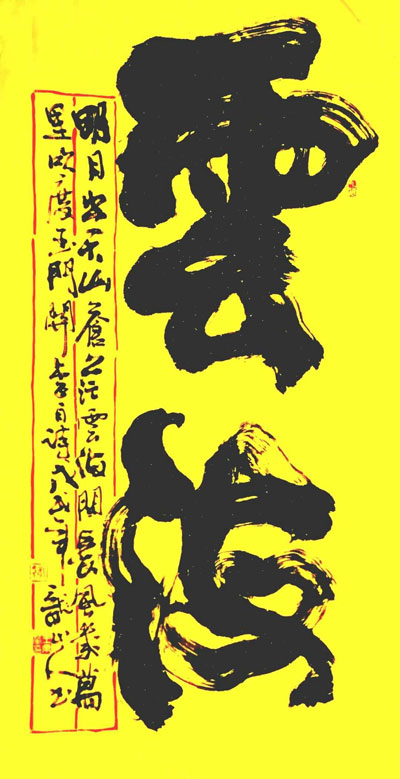 雲海
明月出天山蒼茫雲海間長風幾萬
里吹度玉門關李白詩戊戌年